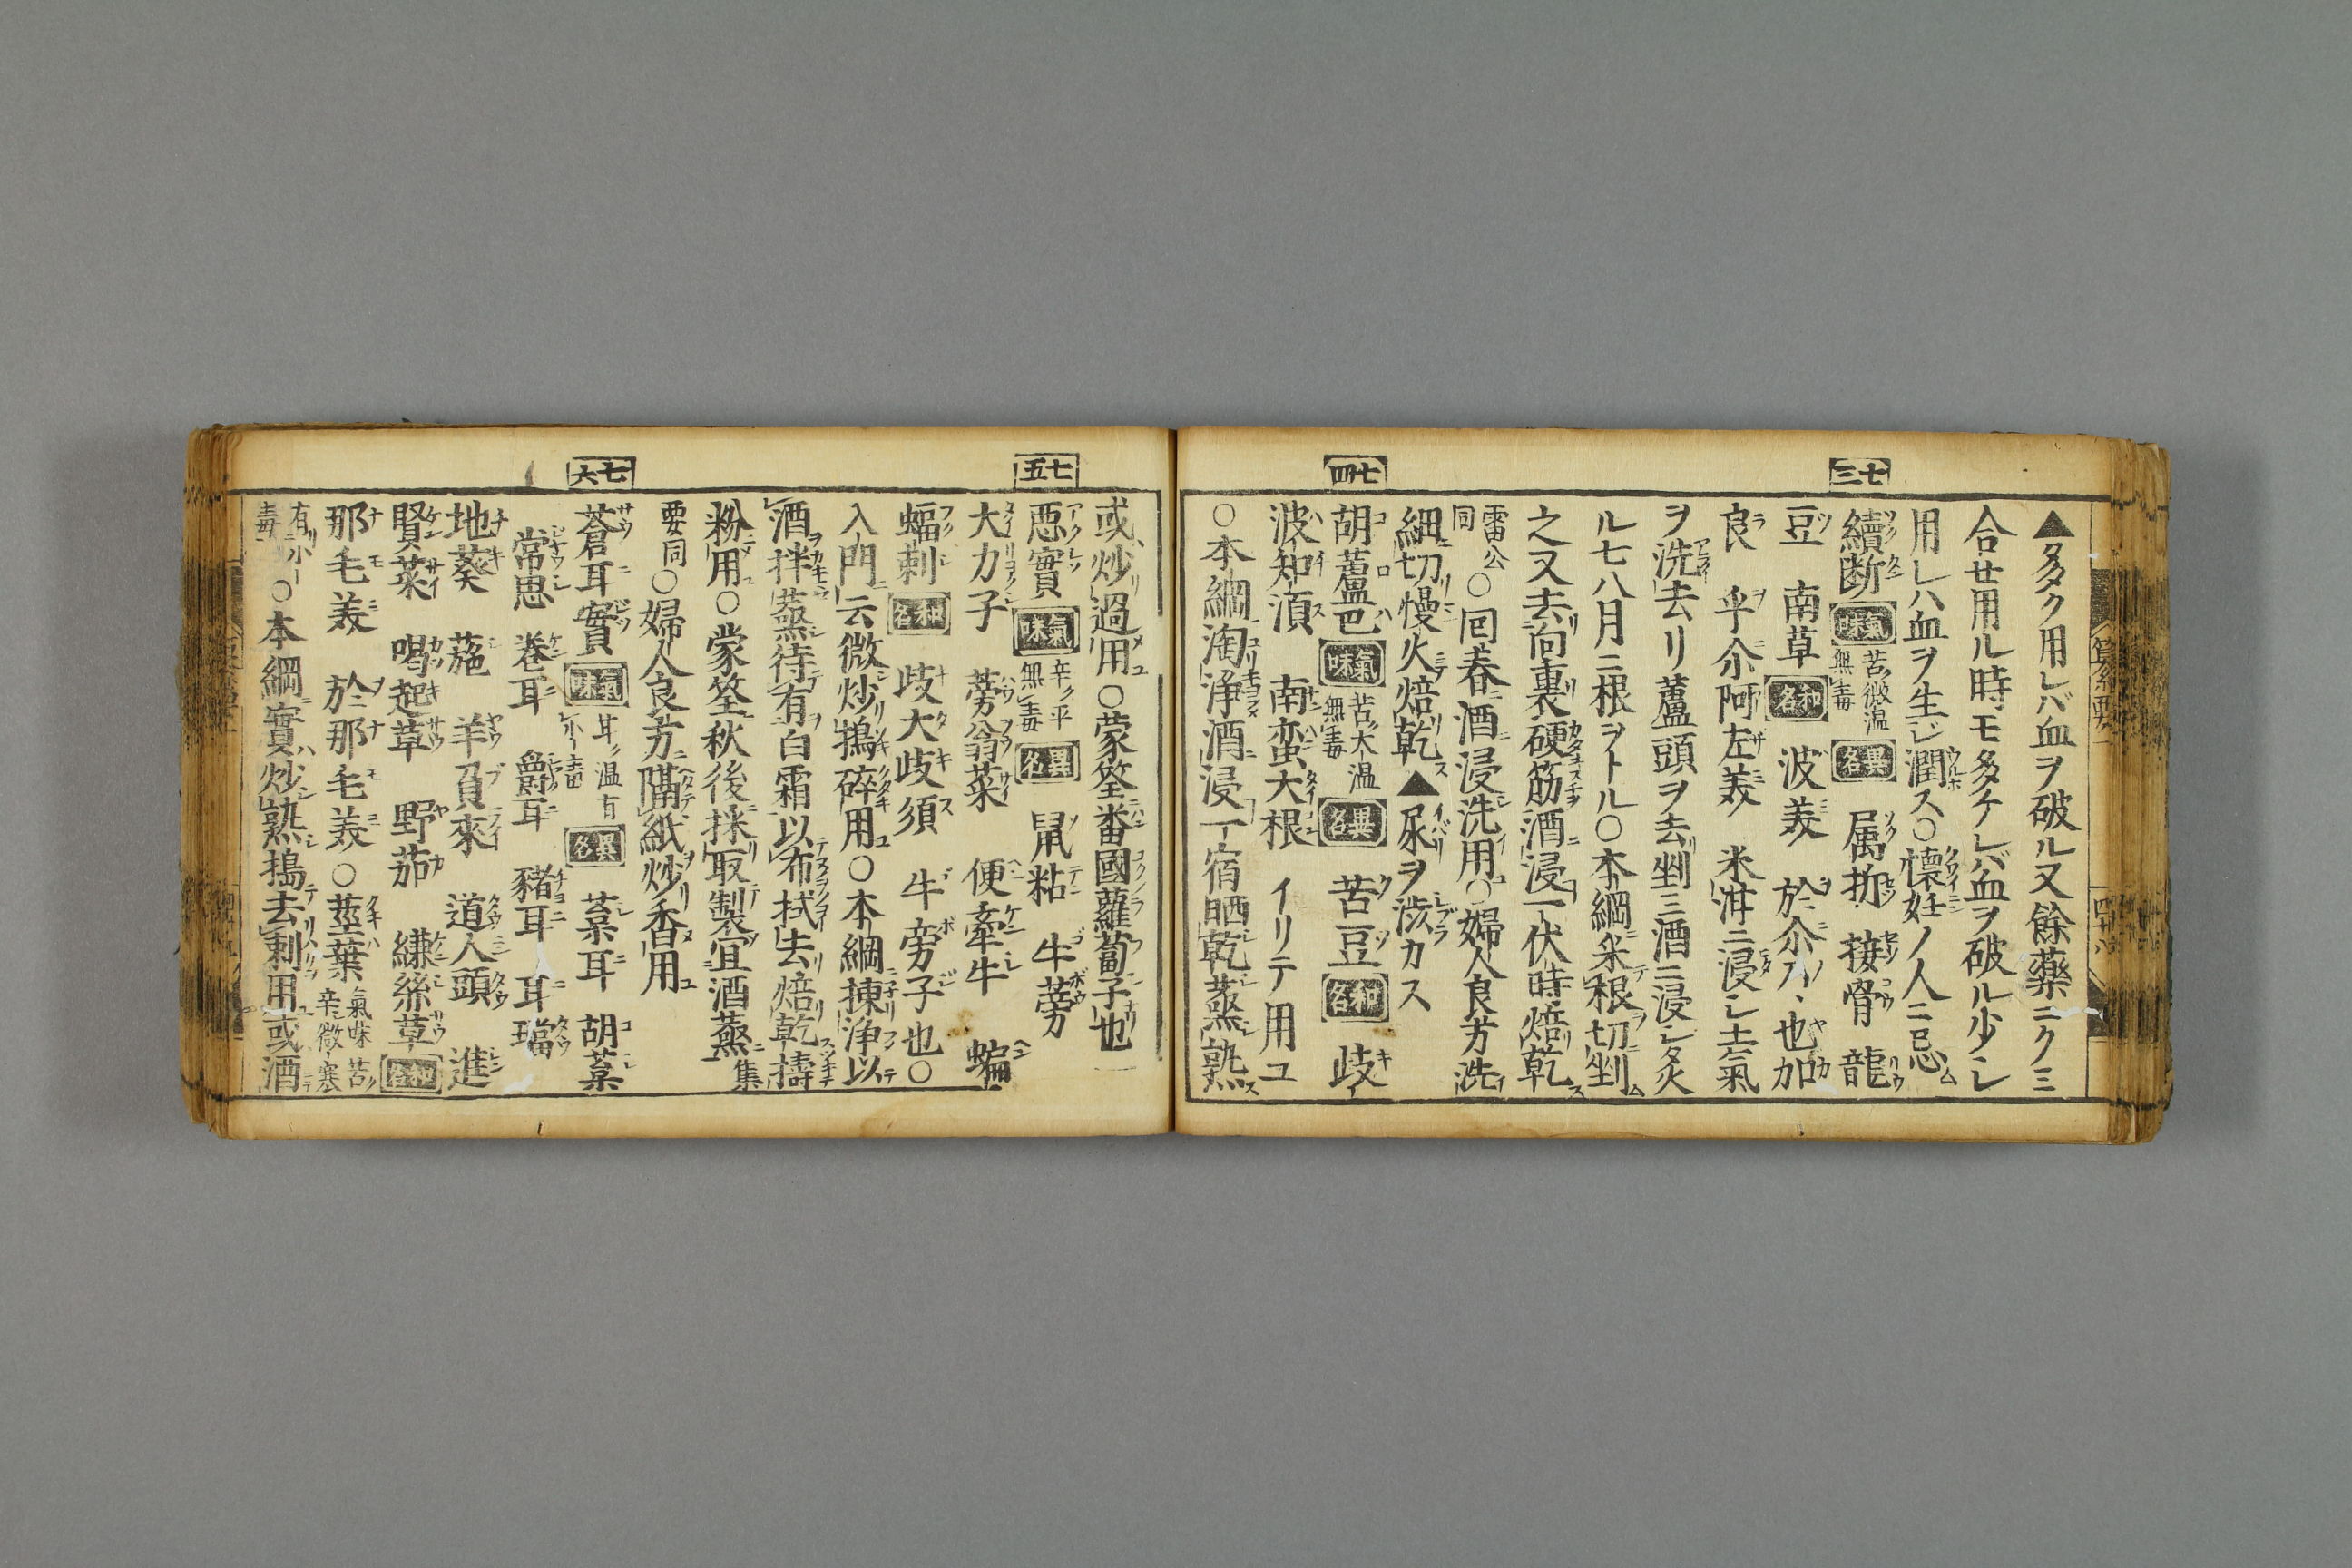 ▲多ク用レバ血ヲ破ル又餘藥ニクミ
合セ用ル時モ多ケレバ血ヲ破ル少シ
用レハ血ヲ生ジ潤ス○懷妊ノ人ニ忌
七三
續断 氣味 苦微温無毒 異名 属折 接骨 龍
豆 南草 和名 波美 於尓乃也加
良 乎尓阿左美 米泔ニ浸シ土氣
ヲ洗去リ蘆頭ヲ去剉三酒ニ浸シ炙
ル七八月ニ根ヲトル○本綱采根切剉
之又去向裏硬筋酒浸一伏時焙乾
雷公同○回春酒浸洗用○婦人良方洗
細切慢火焙乾▲尿ヲ渋カス
七四
胡蘆巴 氣味 苦大温無毒 異名 苦豆 和名 歧
波知須 南蛮大根 イリテ用ユ
○本綱淘浄酒浸一宿晒乾蒸熟
或炒過用○蒙筌番國蘿蔔子也
七五
惡實 氣味 辛平無毒 異名 鼠粘 牛蒡
大力子 蒡翁菜 便牽牛 蝙
蝠刺 和名 歧大歧須 牛旁子也○
入門云微炒搗碎用○本綱揀浄以
酒拌蒸待有白霜以布拭去焙乾擣
粉用○蒙筌秋後採取製宜酒蒸集
要同○婦人良方隔紙炒香用
七六
蒼耳實 氣味 温有小毒 異名 葈耳 胡葈
常思 巻耳 爵耳 豬耳 耳璫
地葵 葹 羊負來 道人頭 進
賢菜 喝起草 野茄 縑絲草 和名
那毛美 於那毛美○莖葉氣味苦辛微寒
有小毒○本綱實炒熟搗去刺用或酒